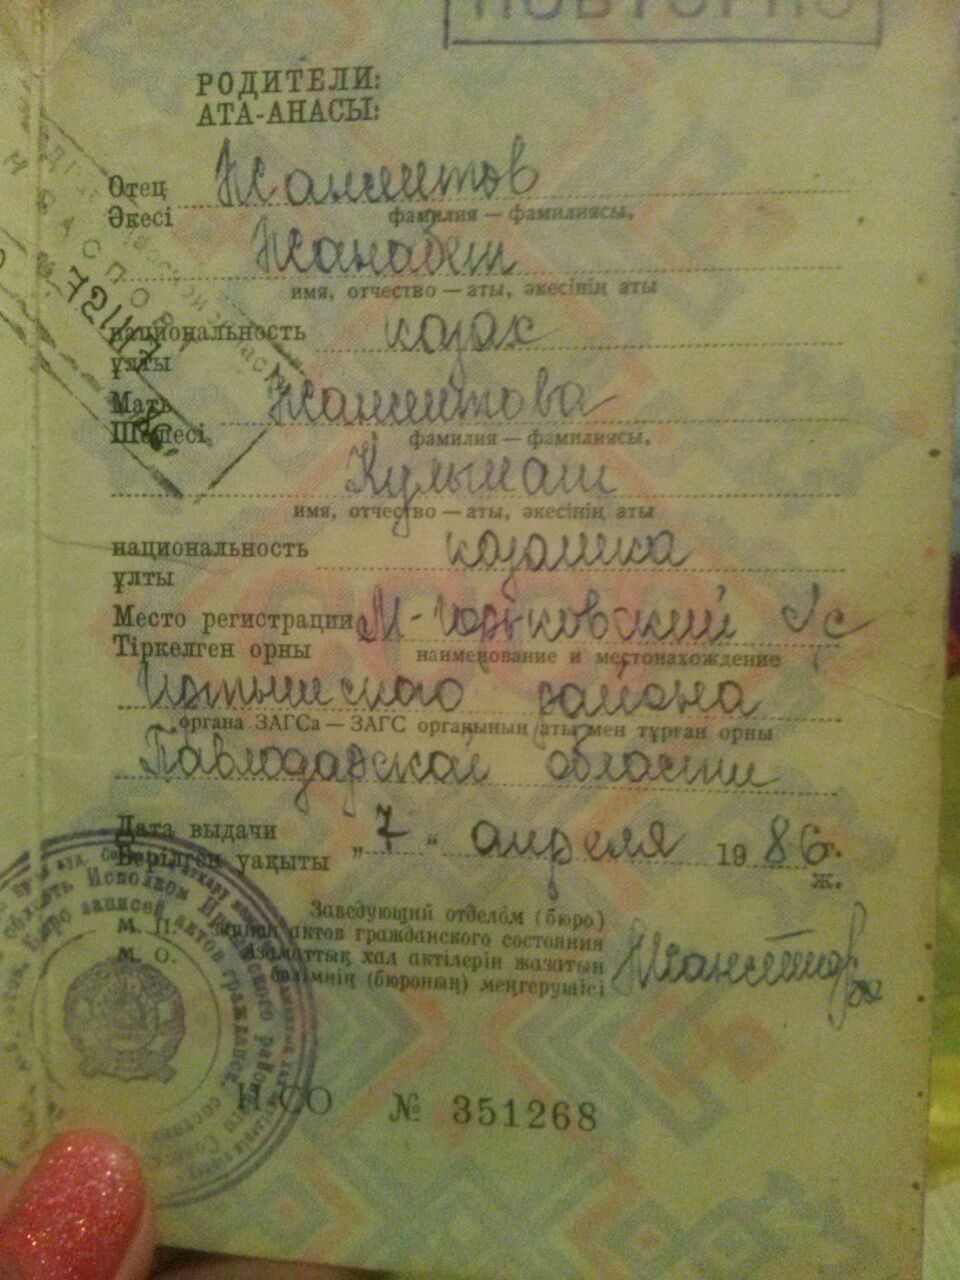 ПОВТОРНО
РОДИТЕЛИ:
АТА-АНАСЫ:
Отец Жамитов
Әкесі фамилия — фамилиясы,
Жанабет
имя, отчество — аты, әкесінің аты
национальность казах
ұлты
Мать Жамитова
Шешесі фамилия — фамилиясы,
Кульмаш
имя, отчество — аты, әкесінің аты
национальность казашка
ұлты
Место регистрации М-Горьковский с/с
Тіркелген орны наименование и местонахождение
Иртышского района
органа ЗАГСа — ЗАГС органының аты мен тұрған орны
Павлодарской области
Дата выдачи „ 7 “ апреля 19 86 г.
Берілген уақыты ж.
Заведующий отделом (бюро)
М. П. записи актов гражданского состояния
М. О. Азаматтық хал актілерін жазатын
бөлімнің (бюроның) меңгерушісі
II-СО № 351268